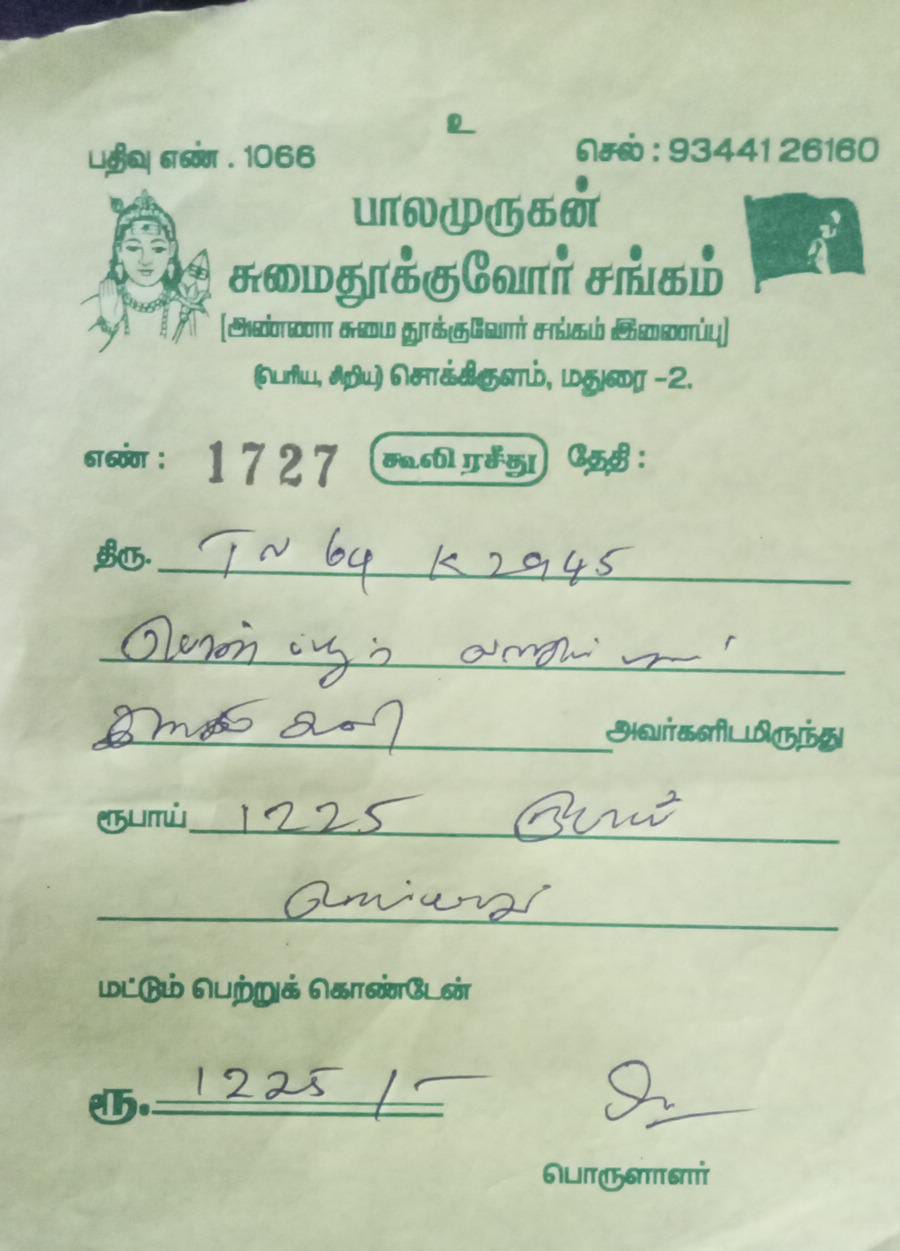 உ
பதிவு எண் . 1066 செல் : 93441 26160
பாலமுருகன்
சுமைதூக்குவோர் சங்கம்
(அண்ணா சுமை தூக்குவோர் சங்கம் இணைப்பு)
(பெரிய, சிறிய) சொக்கிகுளம், மதுரை -2.
எண் : 1727 கூலி ரசீது தேதி :
திரு. TN 64 K 2945
அவர்களிடமிருந்து
ரூபாய் 1225 ரூபாய்
மட்டும் பெற்றுக் கொண்டேன்
ரூ. 1225 /-
பொருளாளர்